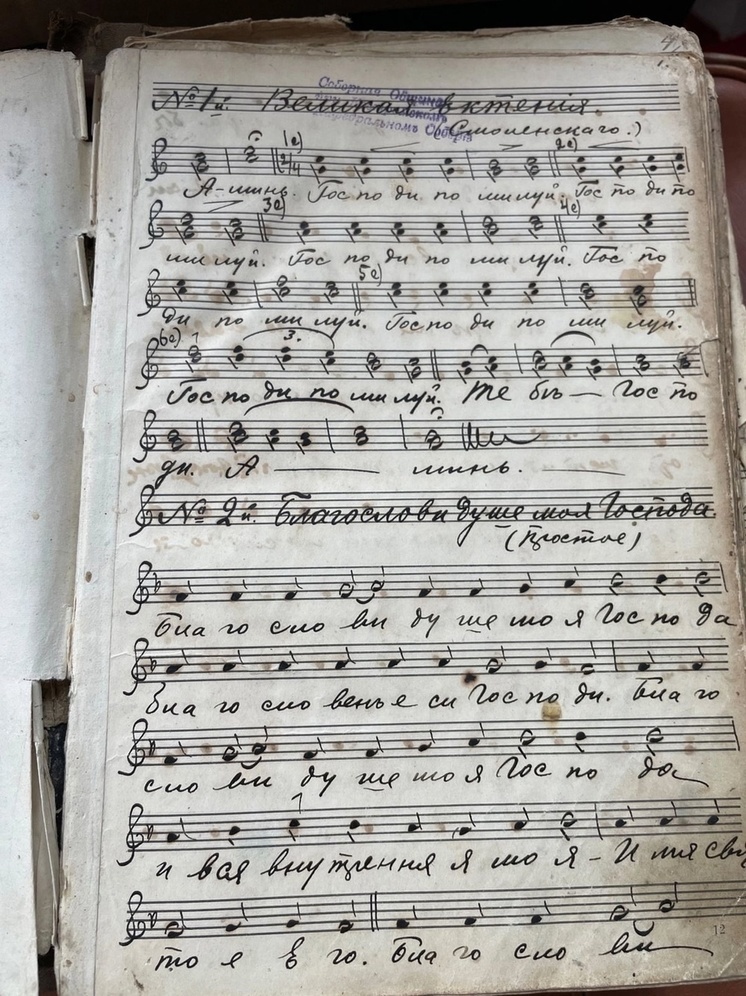 4
№ 1й. Великая ектенія.
Соборная Община
Соборѣ
(Смоленскаго.)
1е) 2е)
2/4
А-минь. Гос по ди по милуй. Гос по ди по
3е) 4е)
ми луй. Гос по ди по ми луй. Гос по
5е)
ди по ми луй. Гос по ди по ми луй.
6е) 3.
Гос по ди по ми луй. Те бѣ — Гос по
ди. А — минь.
№ 2й. Благослови душе моя Господа.
(простое)
Бла го сло ви ду ше мо я Гос по да
бла го сло вень е си Гос по ди. Бла го
сло ви ду ше мо я Гос по да
и вся вну трення я мо я - И мя свя
то е Е го. Бла го сло ви
12